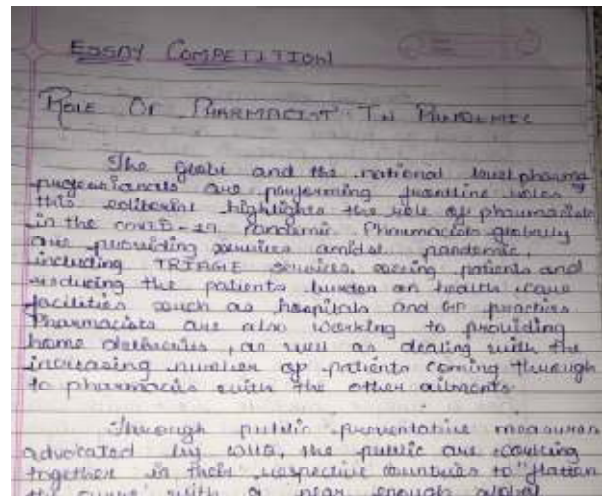 ESSAY COMPETITION
ROLE OF PHARMACIST IN PANDEMIC
The globe and the national level pharma
professionals are performing frontline roles
this editorial highlights the role of pharmacists
in the COVID-19 Pandemic. Pharmacists globally
are providing services amidst pandemic,
including TRIAGE services, seeing patients and
reducing the patients burden on health care
facilities such as hospitals and GP practices
Pharmacists are also working to providing
home deliveries, as well as dealing with the
increasing number of patients coming through
to pharmacies with the other ailments.
Through public preventative measures
advocated by WHO, the public are working
together in their respective countries to "flatten
the curve" with a near enough global